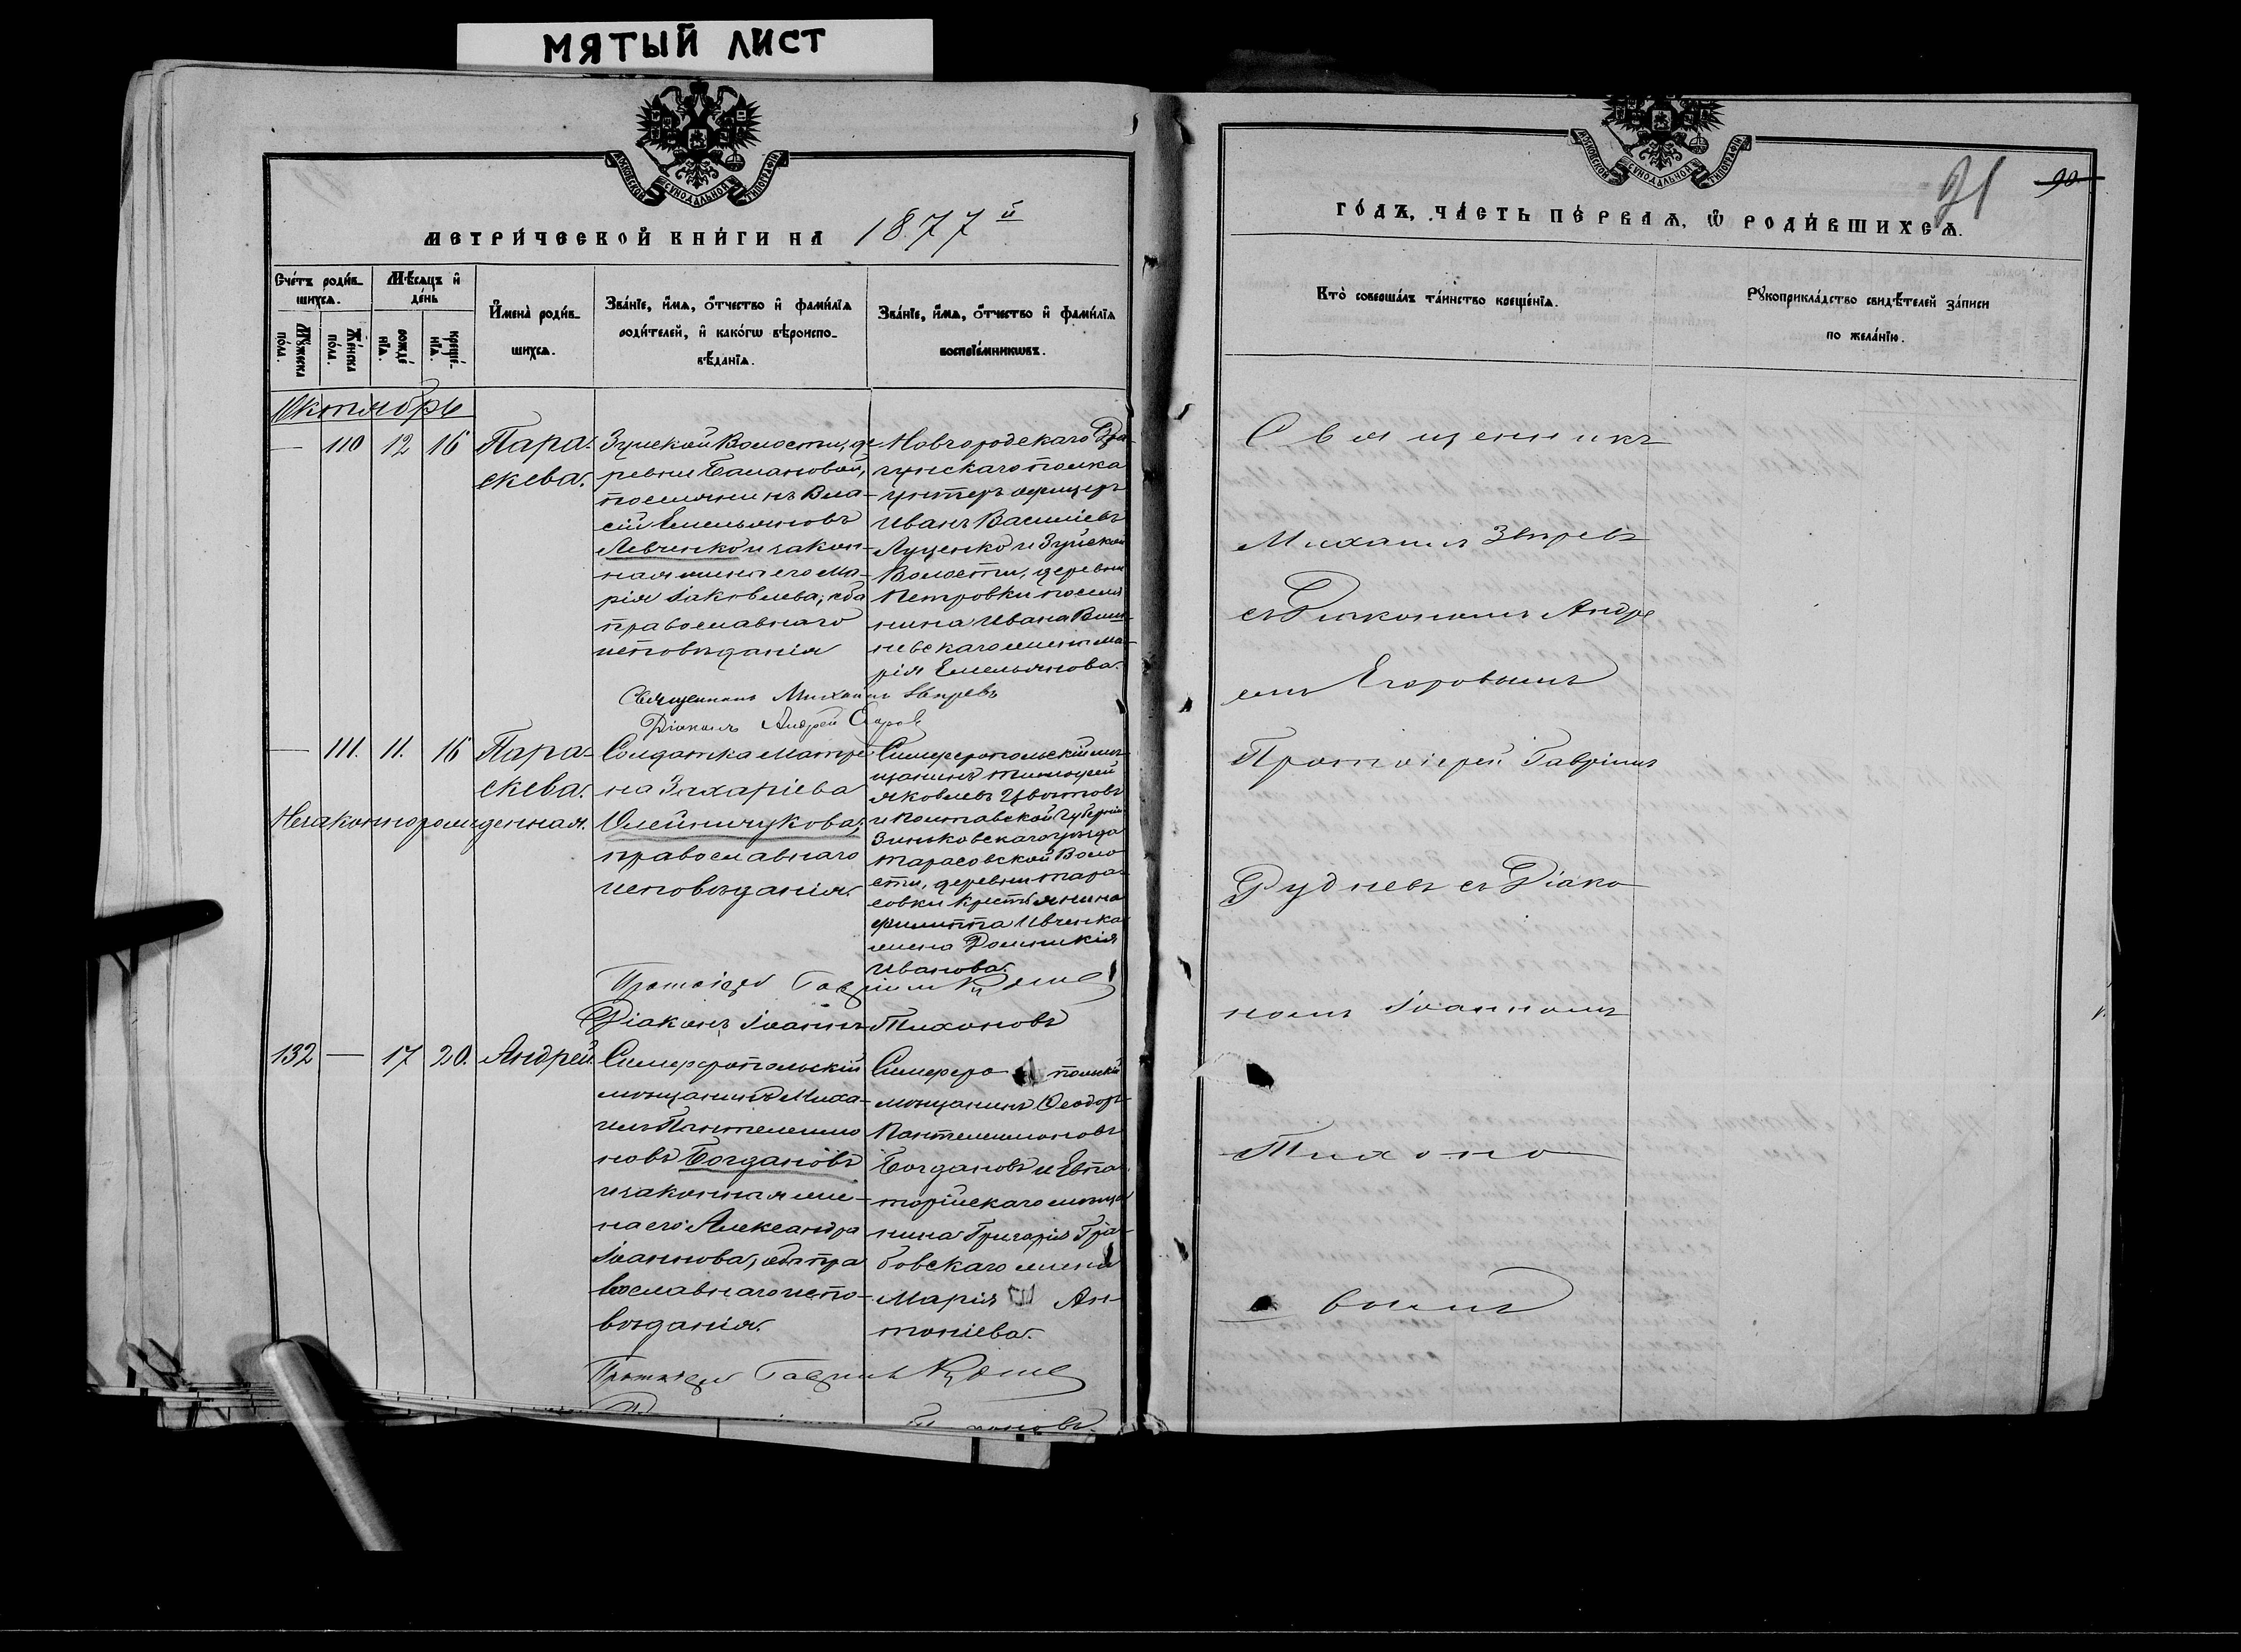 МЯТЫЙ ЛИСТ
МОСКОВСКОЙ СУНОДАЛЬНОЙ ТИПОГРАФІИ
МЕТРИ́ЧЕСКОЙ КНИ́ГИ НА 1877й
Сче́тъ роди́в-
шихсѧ.
Мѣ́сѧцъ и҆
де́нь
Мꙋ́жеска
по́ла.
Же́нска
по́ла.
рожде́
нїѧ.
креще́-
нїѧ.
И҆мена̀ роди́в-
шихсѧ.
Зва́нїе, и҆́мѧ, ѻ҆́тчество и҆ фами́лїѧ
роди́телей, и҆ како́гѡ вѣроиспо-
вѣ́данїѧ.
Зва́нїе, и҆́мѧ, ѻ҆́тчество и҆ фами́лїѧ
воспрїе́мникѡвъ.
Октябрь
— 110 12 16 Пара-
скева.
Зуйской Волости, де
ревни Балановой,
поселянинъ Вла-
сій Емельяновъ
Левченко и закон-
ная жена его Ма-
рія Іаковлева; оба
православнаго
исповѣданія
Новгородскаго Дра-
гунскаго полка
унтеръ офицеръ
Иванъ Василіевъ
Луценко и Зуйской
Волости, деревни
Петровки поселя
нина Ивана Виш-
невскаго жена Ма-
рія Емельянова.
Священникъ Михаилъ Звѣревъ
Діаконъ Андрей Егоровъ
— 111. 11. 16 Пара-
скева.
Незаконнорожденная.
Солдатка Матре
на Захаріева
Олейничукова;
православнаго
исповѣданія.
Симферопольскій мѣ-
щанинъ Тимофей
Яковлевъ Цвѣтовъ
и Полтавской Губерніи
Зинковскаго уѣзда
Тарасовской Воло
сти, деревни Тара-
совки крестьянина
Филиппа Ивченка
жена Домникія
Иванова.
Протоіерей Гавріилъ Рудневъ
Діаконъ Іоаннъ Тихоновъ
132 — 17 20. Андрей.
Симферопольскій
мѣщанинъ Миха-
илъ Пантелеимо
новъ Богдановъ
и законная же-
на его Александра
Іоаннова, оба пра
вославнаго испо-
вѣданія.
Симферо польскій
мѣщанинъ Ѳеодоръ
Пантелеимоновъ
Богдановъ и Евпа-
торійскаго мѣща
нина Григорія Гра-
бовскаго жена
Марія Ан-
тоніева.
Протоіерей Гавріилъ Рудневъ
Тихоновъ.
91 90
МОСКОВСКОЙ СУНОДАЛЬНОЙ ТИПОГРАФІИ
ГО́ДЪ, ЧА́СТЬ ПЕ́РВАѦ, Ѽ РОДИ́ВШИХСѦ.
Кто̀ соверша́лъ та́инство креще́нїѧ.
Рꙋкоприкла́дство свидѣ́телей за́писи
по жела́нїю.
Священникъ
Михаилъ Звѣревъ
съ Діакономъ Андре
емъ Егоровымъ
Протоіерей Гавріилъ
Рудневъ съ Діако-
номъ Іоанномъ
Тихоно-
вымъ